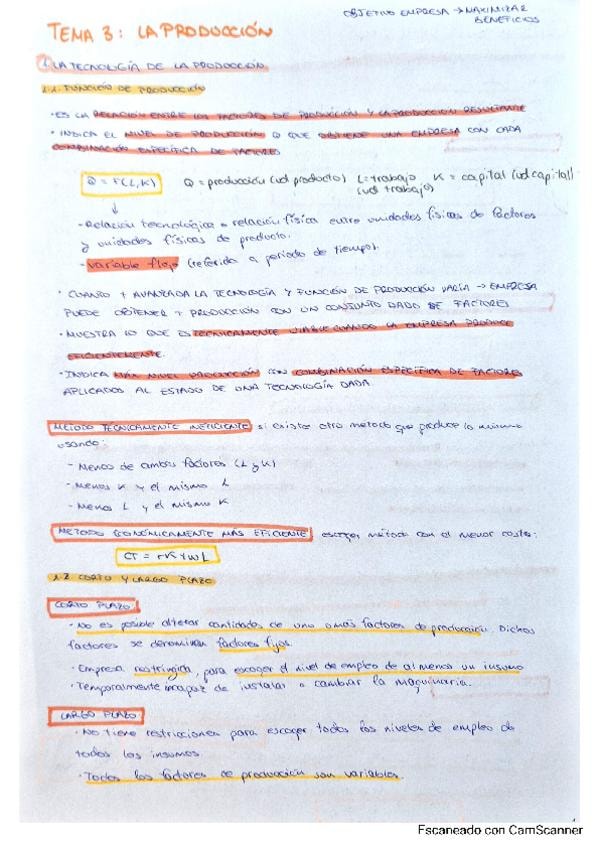 OBJETIVO EMPRESA → MAXIMIZAR
BENEFICIOS
TEMA 3: LA PRODUCCIÓN
1. LA TECNOLOGÍA DE LA PRODUCCIÓN
1.1. FUNCIÓN DE PRODUCCIÓN
· ES LA RELACIÓN ENTRE LOS FACTORES DE PRODUCCIÓN Y LA PRODUCCIÓN RESULTANTE
· INDICA EL NIVEL DE PRODUCCIÓN Q QUE OBTIENE UNA EMPRESA CON CADA
COMBINACIÓN ESPECÍFICA DE FACTORES
Q = F(L,K) Q = producción (ud producto) L = trabajo K = capital (ud capital)
(ud trabajo)
↓
- Relación tecnológica o relación física entre unidades físicas de factores
y unidades físicas de producto.
- Variable flujo (referida a periodo de tiempo).
· CUANTO + AVANZADA LA TECNOLOGÍA Y FUNCIÓN DE PRODUCCIÓN VARÍA → EMPRESA
PUEDE OBTENER + PRODUCCIÓN CON UN CONJUNTO DADO DE FACTORES
· MUESTRA LO QUE ES TECNICAMENTE VIABLE CUANDO LA EMPRESA PRODUCE
EFICIENTEMENTE.
· INDICA MÁX NIVEL PRODUCCIÓN CON COMBINACIÓN ESPECÍFICA DE FACTORES
APLICADOS AL ESTADO DE UNA TECNOLOGÍA DADA.
METODO TECNICAMENTE INEFICIENTE si existe otro metodo que produce lo mismo
usando:
- Menos de ambos factores (L y K)
- Menos K y el mismo L
- Menos L y el mismo K
METODO ECONÓMICAMENTE MÁS EFICIENTE escoger método con el menor coste:
CT = rK + wL
1.2 CORTO Y LARGO PLAZO
CORTO PLAZO:
· No es posible alterar cantidades de uno o más factores de producción. Dichos
factores se denominan factores fijos.
· Empresa restringida, para escoger el nivel de empleo de al menos un insumo
· Temporalmente incapaz de instalar o cambiar la maquinaria.
LARGO PLAZO
· No tiene restricciones para escoger todos los niveles de empleo de
todos los insumos.
· Todos los factores de producción son variables.
Escaneado con CamScanner